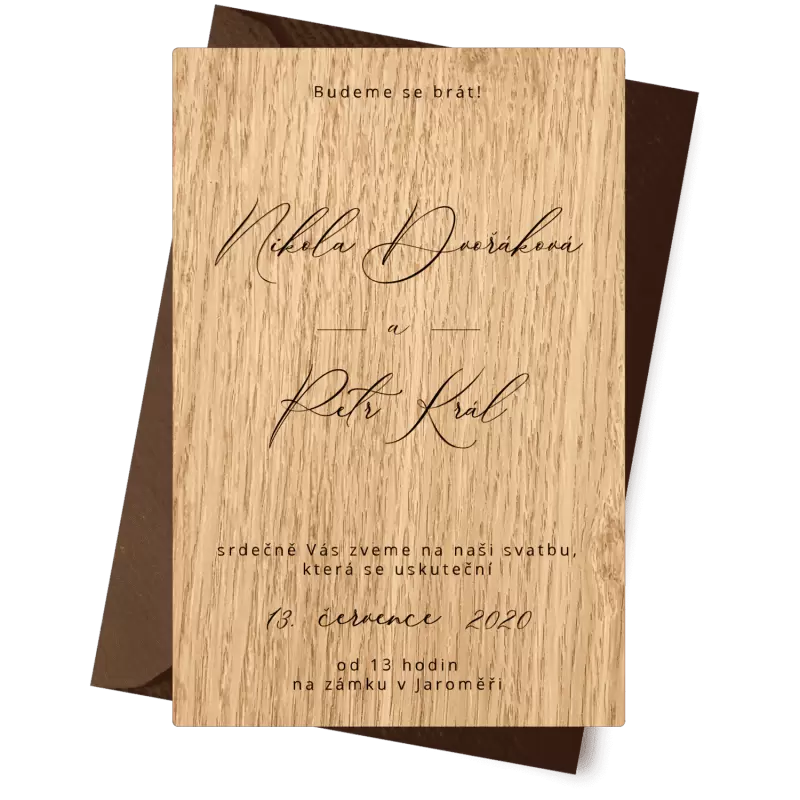 Budeme se brát!
Nikola Dvořáková
a
Petr Král
srdečně Vás zveme na naši svatbu,
která se uskuteční
13. července 2020
od 13 hodin
na zámku v Jaroměři